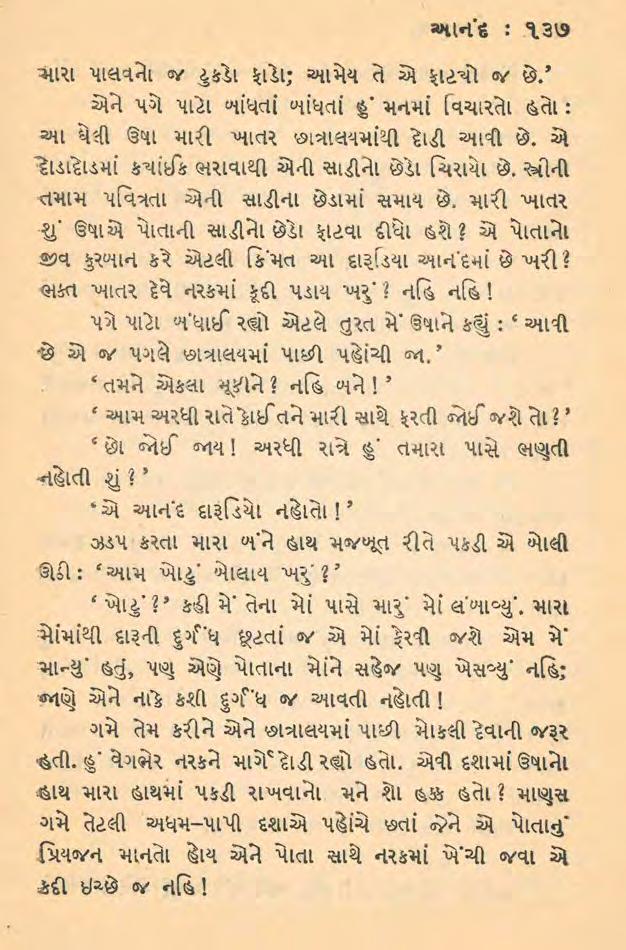 આનંદ : ૧૩૭
મારા પાલવનો જ ટુકડો ફાડો; આમેય તે એ ફાટયો જ છે.’
એને પગે પાટો બાંધતાં બાંધતાં હું મનમાં વિચારતો હતો :
આ ઘેલી ઉષા મારી ખાતર છાત્રાલયમાંથી દોડી આવી છે. એ
દોડાદોડમાં કયાંઈક ભરાવાથી એની સાડીનો છેડો ચિરાયો છે. સ્ત્રીની
તમામ પવિત્રતા એની સાડીના છેડામાં સમાય છે. મારી ખાતર
શું ઉષાએ પોતાની સાડીનો છેડો ફાટવા દીધો હશે? એ પોતાનો
જીવ કુરબાન કરે એટલી કિંમત આ દારૂડિયા આનંદમાં છે ખરી?
ભક્ત ખાતર દેવે નરકમાં કૂદી પડાય ખરું? નહિ નહિ!
પગે પાટો બંધાઈ રહ્યો એટલે તુરત મેં ઉષાને કહ્યું : ‘આવી
છે એ જ પગલે છાત્રાલયમાં પાછી પહોંચી જા.’
‘તમને એકલા મૂકીને? નહિ બને!’
‘આમ અરધી રાતે કોઈ તને મારી સાથે ફરતી જોઈ જશે તો?’
‘છો જોઈ જાય! અરધી રાત્રે હું તમારા પાસે ભણતી
નહોતી શું?’
‘એ આનંદ દારૂડિયો નહોતો!’
ઝડપ કરતા મારા બંને હાથ મજબૂત રીતે પકડી એ બોલી
ઊઠી : ‘આમ ખોટું બોલાય ખરું?’
‘ખોટું?’ કહી મેં તેના મોં પાસે મારું મોં લંબાવ્યું. મારા
મોંમાંથી દારૂની દુર્ગંધ છૂટતાં જ એ મોં ફેરવી જશે એમ મેં
માન્યું હતું, પણ એણે પોતાના મોંને સહેજ પણ ખેસવ્યું નહિ;
જાણે એને નાકે કશી દુર્ગંધ જ આવતી નહોતી!
ગમે તેમ કરીને એને છાત્રાલયમાં પાછી મોકલી દેવાની જરૂર
હતી. હું વેગભેર નરકને માર્ગે દોડી રહ્યો હતો. એવી દશામાં ઉષાનો
હાથ મારા હાથમાં પકડી રાખવાનો મને શો હક્ક હતો? માણસ
ગમે તેટલી અધમ–પાપી દશાએ પહોંચે છતાં જેને એ પોતાનું
પ્રિયજન માનતો હોય એને પોતા સાથે નરકમાં ખેંચી જવા એ
કદી ઇચ્છે જ નહિ!